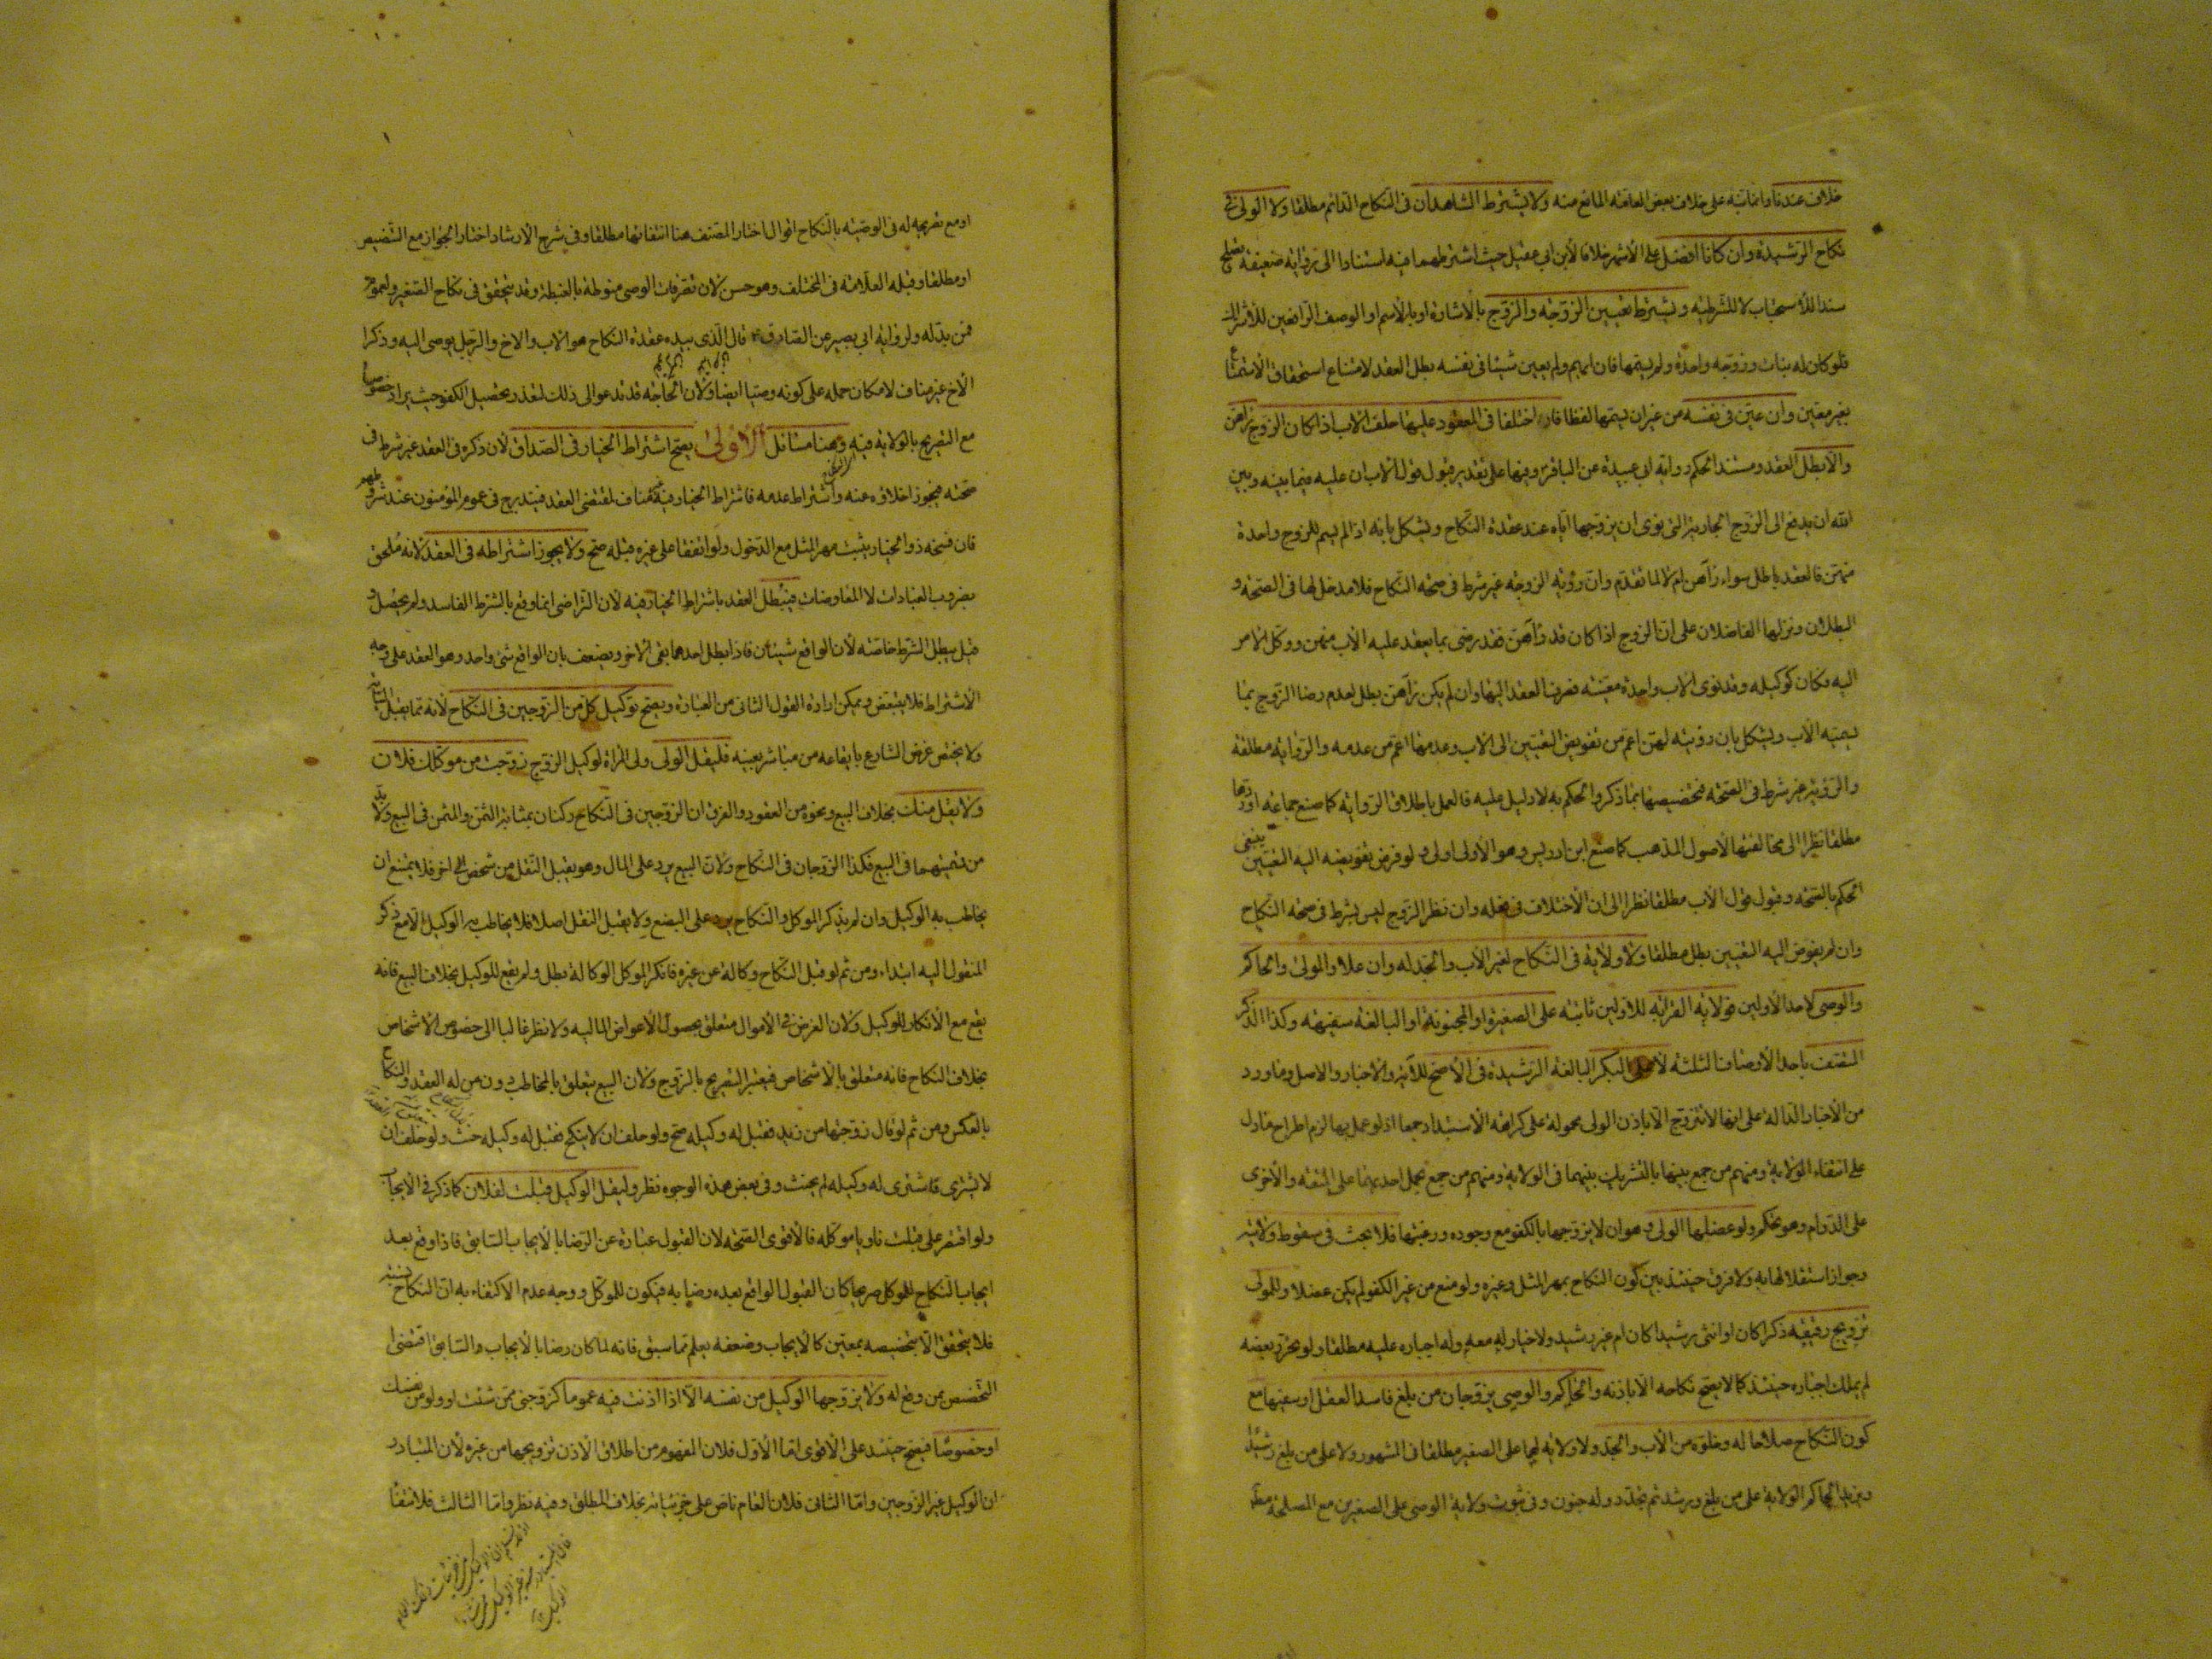 خلاف عندنا وانما نبه على خلاف بعض العامة المانع منه ولا يشترط الشاهدان فى النكاح الدائم مطلقا ولا الولى فى
نكاح الرشيدة وان كانا افضل على الأشهر خلافا لأبن ابي عقيل حيث اشترطهما فيه استنادا الى رواية ضعيفة تصلح
سندا للأستحباب لا للشرطية ويشترط تعيين الزوجة والزوج بالأشارة او بالأسم او الوصف الرافعين للأشتراك
فلو كان له بنات وزوجه واحدة ولم يسمها فان ابهم ولم يعين شيئا فى نفسه بطل العقد لامتناع استحقاق الاستمتاع
بغير معين وان عين فى نفسه من غير ان يسمها لفظا فاختلفا فى المعقود عليها حلف الأب اذا كان الزوج راهن
والا بطل العقد ومستند الحكم رواية ابي عبيدة عن الباقر وفيها على تقدير قبول قول الاب ان عليه فيما بينه وبين
الله ان يدفع الى الزوج الجارية التى نوى ان يزوجها اياه عند عقدة النكاح ويشكل بانه اذا لم يسم للزوج واحدة
منهن فالعقد باطل سواء رآهن ام لا لما تقدم وان رؤية الزوجة غير شرط فى صحة النكاح فلا مدخل لها فى الصحة و
البطلان ونزلها الفاضلان على ان الزوج اذا كان قد رآهن فقد رضى بما يعقد عليه الأب منهن ووكل الامر
اليه فكان كوكيله وقد نوى الاب واحدة معينة فصرف العقد اليها وان لم يكن رآهن بطل لعدم رضا الزوج بما
يسميه الأب ويشكل بان رؤيته لهن اعم من تفويض التعيين الى الاب وعدمها اعم من عدمه والرواية مطلقة
والرؤية غير شرط فى الصحة فتخصيصها بما ذكر والحكم به لا دليل عليه فالعمل باطلاق الرواية كما صنع جماعة اوردها
مطلقا نظرا الى مخالفتها لأصول المذهب كما صنع ابن ادريس وهو الأولى اولى ولو فرض تفويضه اليه التعيين ينبغى
الحكم بالصحة وقبول قول الأب مطلقا نظرا الى ان الأختلاف فى فعله وان نظر الزوج ليس بشرط فى صحة النكاح
وان لم يفوض اليه التعيين بطل مطلقا ولا ولاية فى النكاح لغير الأب والجد له وان علا والمولى والحاكم
والوصى لاحد الأولين فولاية القرابة للأولين ثابتة على الصغيرة او المجنونة او البالغة سفيهة وكذا الذكر
المتصف باحد الأوصاف الثلثة لا على البكر البالغة الرشيدة فى الأصح للآية والأخبار والاصل وما ورد
من الأخبار الدالة على انها لا تتزوج الا باذن الولى محمولة على كراهة الأستبداد جمعا اذ لو عمل بها لزم اطراح ما دل
على انتفاء الولاية ومنهم من جمع بينها بالتشريك بينهما فى الولاية ومنهم من جمع بحمل احديهما على المتعة والأخرى
على الدوام وهو تحكم ولو عضلها الولى وهو ان لا يزوجها بالكفو مع وجوده ورغبتها فلا بحث فى سقوط ولايته
وجواز استقلالها به ولا فرق حينئذ بين كون النكاح بمهر المثل وغيره ولو منع من غير الكفو لم يكن عضلا وللمولى
تزويج رقيقه ذكرا كان او انثى رشيدا كان ام غير رشيد ولا خيار له معه وله اجباره عليه مطلقا ولو تحرر بعضه
لم يملك اجباره حينئذ كما لا يصح نكاحه الا باذنه والحاكم والوصى يزوجان من بلغ فاسد العقل او سفيها مع
كون النكاح صلاحا له وخلوه من الأب والجد ولا ولاية لهما على الصغير مطلقا فى المشهور ولا على من بلغ رشيدا
ويزيد الحاكم الولاية على من بلغ ورشد ثم تجدد له جنون وفى ثبوت ولاية الوصى على الصغيرين مع المصلحة مطلقا
او مع تصريحه له فى الوصية بالنكاح اقوال اختار المصنف هنا انتفائها مطلقا وفى شرح الأرشاد اختار الجواز مع التنصيص
او مطلقا وقبله العلامة فى المختلف وهو حسن لان تصرفات الوصى منوطة بالغبطة وقد يتحقق فى نكاح الصغير ولعموم
فمن بدله ولرواية ابي بصير عن الصادق ع قال الذى بيده عقدة النكاح هو الاب والاخ والرجل يوصى اليه وذكرا
الأخ غير مناف لامكان حمله على كونه وصيا ايضا ولأن الحاجة قد تدعو الى ذلك لتعذر تحصيل الكفو حيث يراد خصوصا
مع التصريح بالولاية فيه وهنا مسائل الاولى يصح اشتراط الخيار فى الصداق لأن ذكره فى العقد غير شرط فى
صحته فيجوز اخلاؤه عنه واشتراط عدمه فاشتراط الخيار فيه غير مناف لمقتضى العقد فيندرج فى عموم المؤمنون عند شروطهم
فان فسخه ذو الخيار يثبت مهر المثل مع الدخول ولو اتفقا على غيره قبله صح ولا يجوز اشتراطه فى العقد لأنه ملحق
بضروب العبادات لا المعاوضات فيبطل العقد باشتراط الخيار فيه لأن التراضى انما وقع بالشرط الفاسد ولم يحصل و
قيل يبطل الشرط خاصة لأن الواقع شيئان فاذا بطل احدهما بقى الاخر ويضعف بان الواقع شئ واحد وهو العقد على وجه
الأشتراط فلا يتبعض ويمكن ارادة القول الثانى من العبارة ويصح توكيل كل من الزوجين فى النكاح لأنه مما يقبل النيابة
ولا يختص غرض الشارع بايقاعه من مباشر بعينه فليقل الولى ولى المراة لوكيل الزوج زوجت من موكلك فلان
ولا يقل منك بخلاف البيع ونحوه من العقود والفرق ان الزوجين فى النكاح ركنان بمثابة الثمن والمثمن فى البيع ولا بد
من تسميتهما فى البيع فكذا الزوجان فى النكاح ولأن البيع يرد على المال وهو يقبل النقل من شخص الى اخر فلا يمتنع ان
يخاطب به الوكيل وان لم يذكر الموكل والنكاح يرد على البضع ولا يقبل النقل اصلا فلا يخاطب به الوكيل الا مع ذكر
المنقول اليه ابتداء ومن ثم لو قبل النكاح وكالة عن غيره فانكر الموكل الوكالة بطل ولم يقع للوكيل بخلاف البيع فانه
يقع مع الأنكار للوكيل ولأن الغرض فى الأموال متعلق بحصول الأعواض المالية ولا نظر غالبا الى خصوص الأشخاص
بخلاف النكاح فانه متعلق بالأشخاص فيعتبر التصريح بالزوج ولأن البيع يتعلق بالمخاطب دون من له العقد والنكاح
بالعكس ومن ثم لو قال زوجتها من زيد فقبل له وكيله صح ولو حلف ان لا ينكح فقبل له وكيله حنث ولو حلف ان
لا يشترى فاشترى له وكيله لم يحنث وفى بعض هذه الوجوه نظر وليقل الوكيل قبلت لفلان كما ذكر فى الايجاب
ولو اقتصر على قبلت ناويا موكله فالأقوى الصحة لأن القبول عبارة عن الرضا بالأيجاب السابق فاذا وقع بعد
ايجاب النكاح للموكل صريحا كان القبول الواقع بعده رضا به فيكون للموكل ووجه عدم الاكتفاء به ان النكاح نسبة
فلا يتحقق الا بتخصيصه بمعين كالأيجاب وضعفه يعلم مما سبق فانه لما كان رضا بالأيجاب والسابق اقتضى
التخصيص بمن وقع له ولا يزوجها الوكيل من نفسه الا اذا اذنت فيه عموما كزوجنى ممن شئت او ولو من نفسك
او خصوصا فيصح حينئذ على الأقوى اما الأول فلان المفهوم من اطلاق الأذن تزويجها من غيره لأن المتبادر
ان الوكيل غير الزوجين واما الثانى فلان العام ناص على جزئياته بخلاف المطلق وفيه نظر واما الثالث فلانتفاء